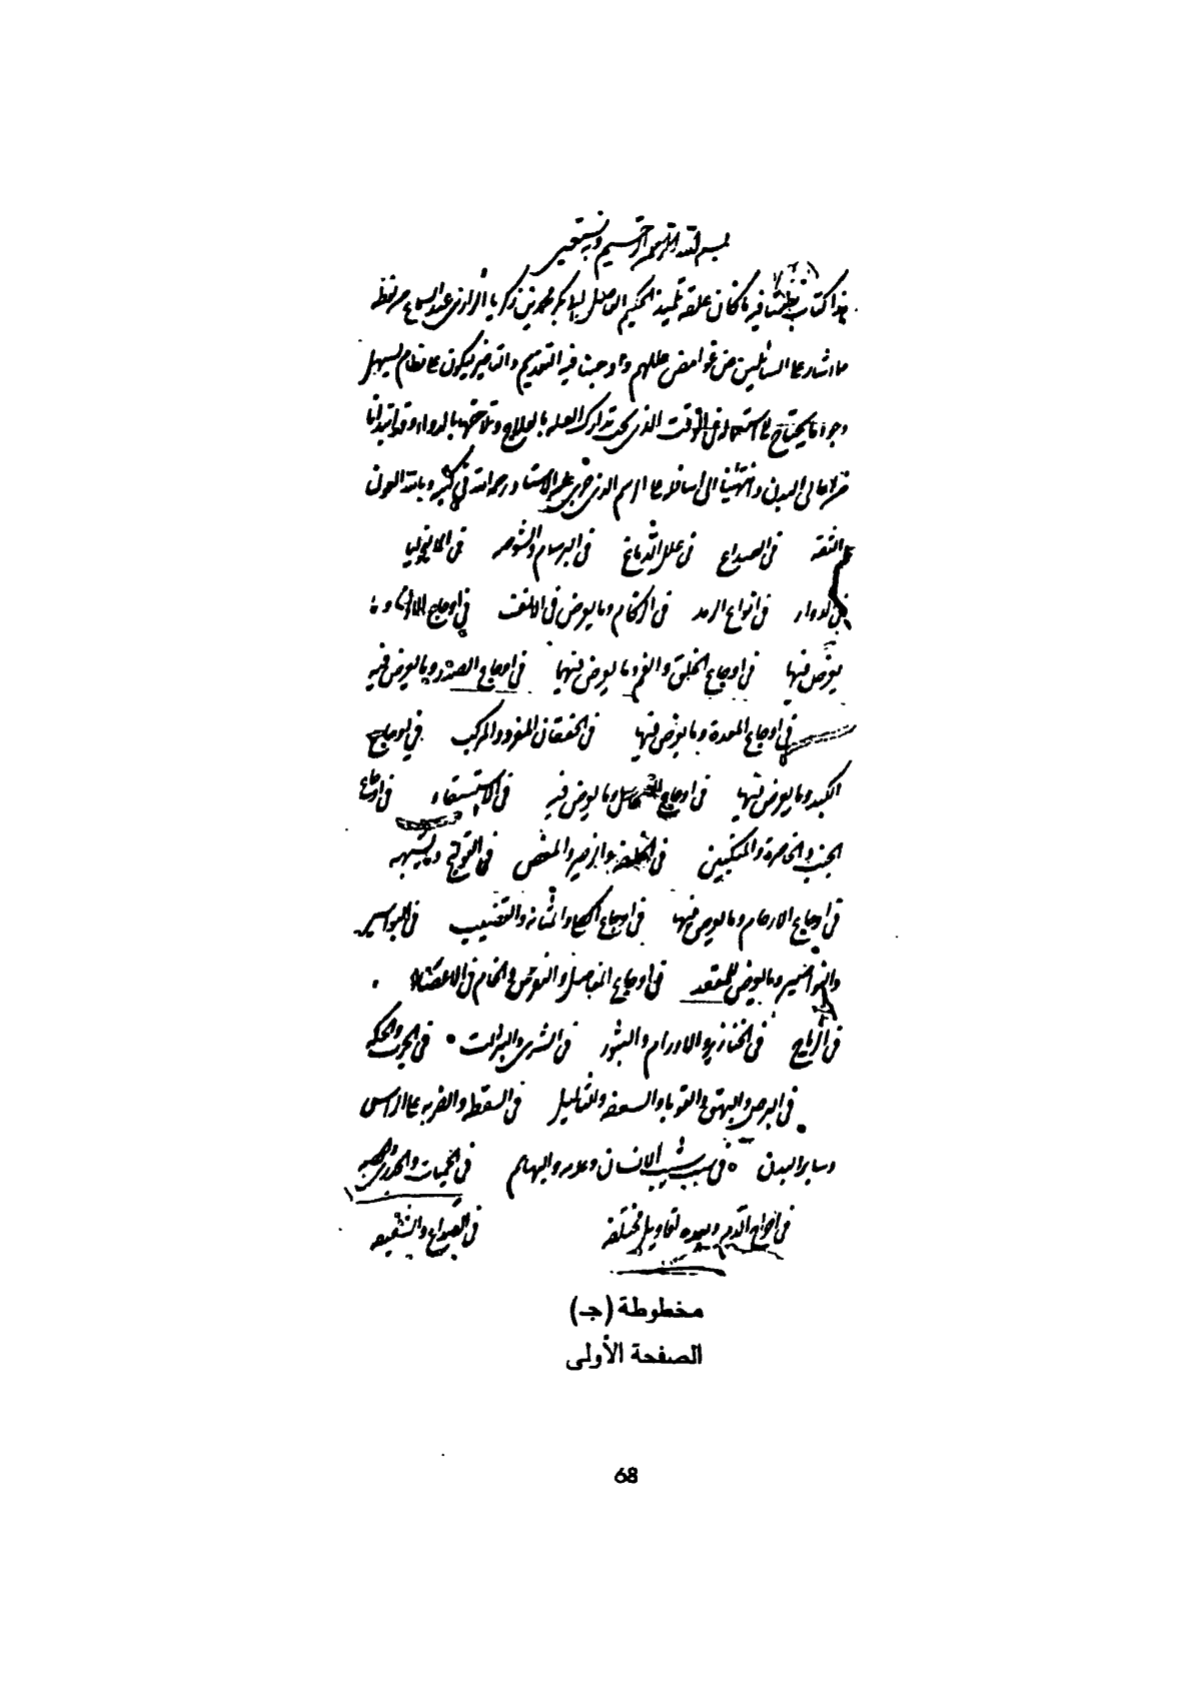 بسم الله الرحمن الرحيم وبه نستعين
هذا كتاب فيه ما كان علقه تلميذ الحكيم الفاضل ابي بكر محمد بن زكريا الرازي عند
ما اشار على السائلين من غوامض عللهم و اوجبت فيه التقديم والتاخير ليكون على نظام ليسهل
وجود ما يحتاج الى في الوقت الذي يجب تدارك العله بالعلاج بالدواء وقد ابتدانا
من الى البدن وانتهينا الى على الرسم الذي جرى عليه الاستاد رحمه الله في وبالله العون
الثقه في الصداع في علل الدماغ في البرسام والشوصه في الماليخوليا
في الدوار في انواع الرمد في الزكام وما يعرض في الانف في اوجاع وما
يعرض فيها في اوجاع الحلق والفم وما يعرض فيها في اوجاع الصدر وما يعرض فيه
في اوجاع المعدة وما يعرض فيها في الخفقان المفرد والمركب في اوجاع
الكبد وما يعرض فيها في اوجاع الطحال وما يعرض فيه في الاستسقاء في اوجاع
الجنب والخاصرة والمنكبين في والزحير والمغص في القولنج وما يشبهه
في اوجاع الارحام وما يعرض فيها في اوجاع الكلى والمثانه والقضيب في البواسير
والنواصير وما يعرض للمقعد في اوجاع المفاصل والنقرس والخام في الاعضاء
في الرياح في الخنازير والاورام والبثور في الشرى في الجرب والحكه
في البرص والبهق والقوبا والسعفه والثاليل في السقطه والضربه على الراس
وساير البدن في سبب شيب الانسان البهايم في الحميات والجدري والحصبه
في اخراج الدم مختلفه في الصداع والشقيقه
مخطوطة (جـ)
الصفحة الأولى
68